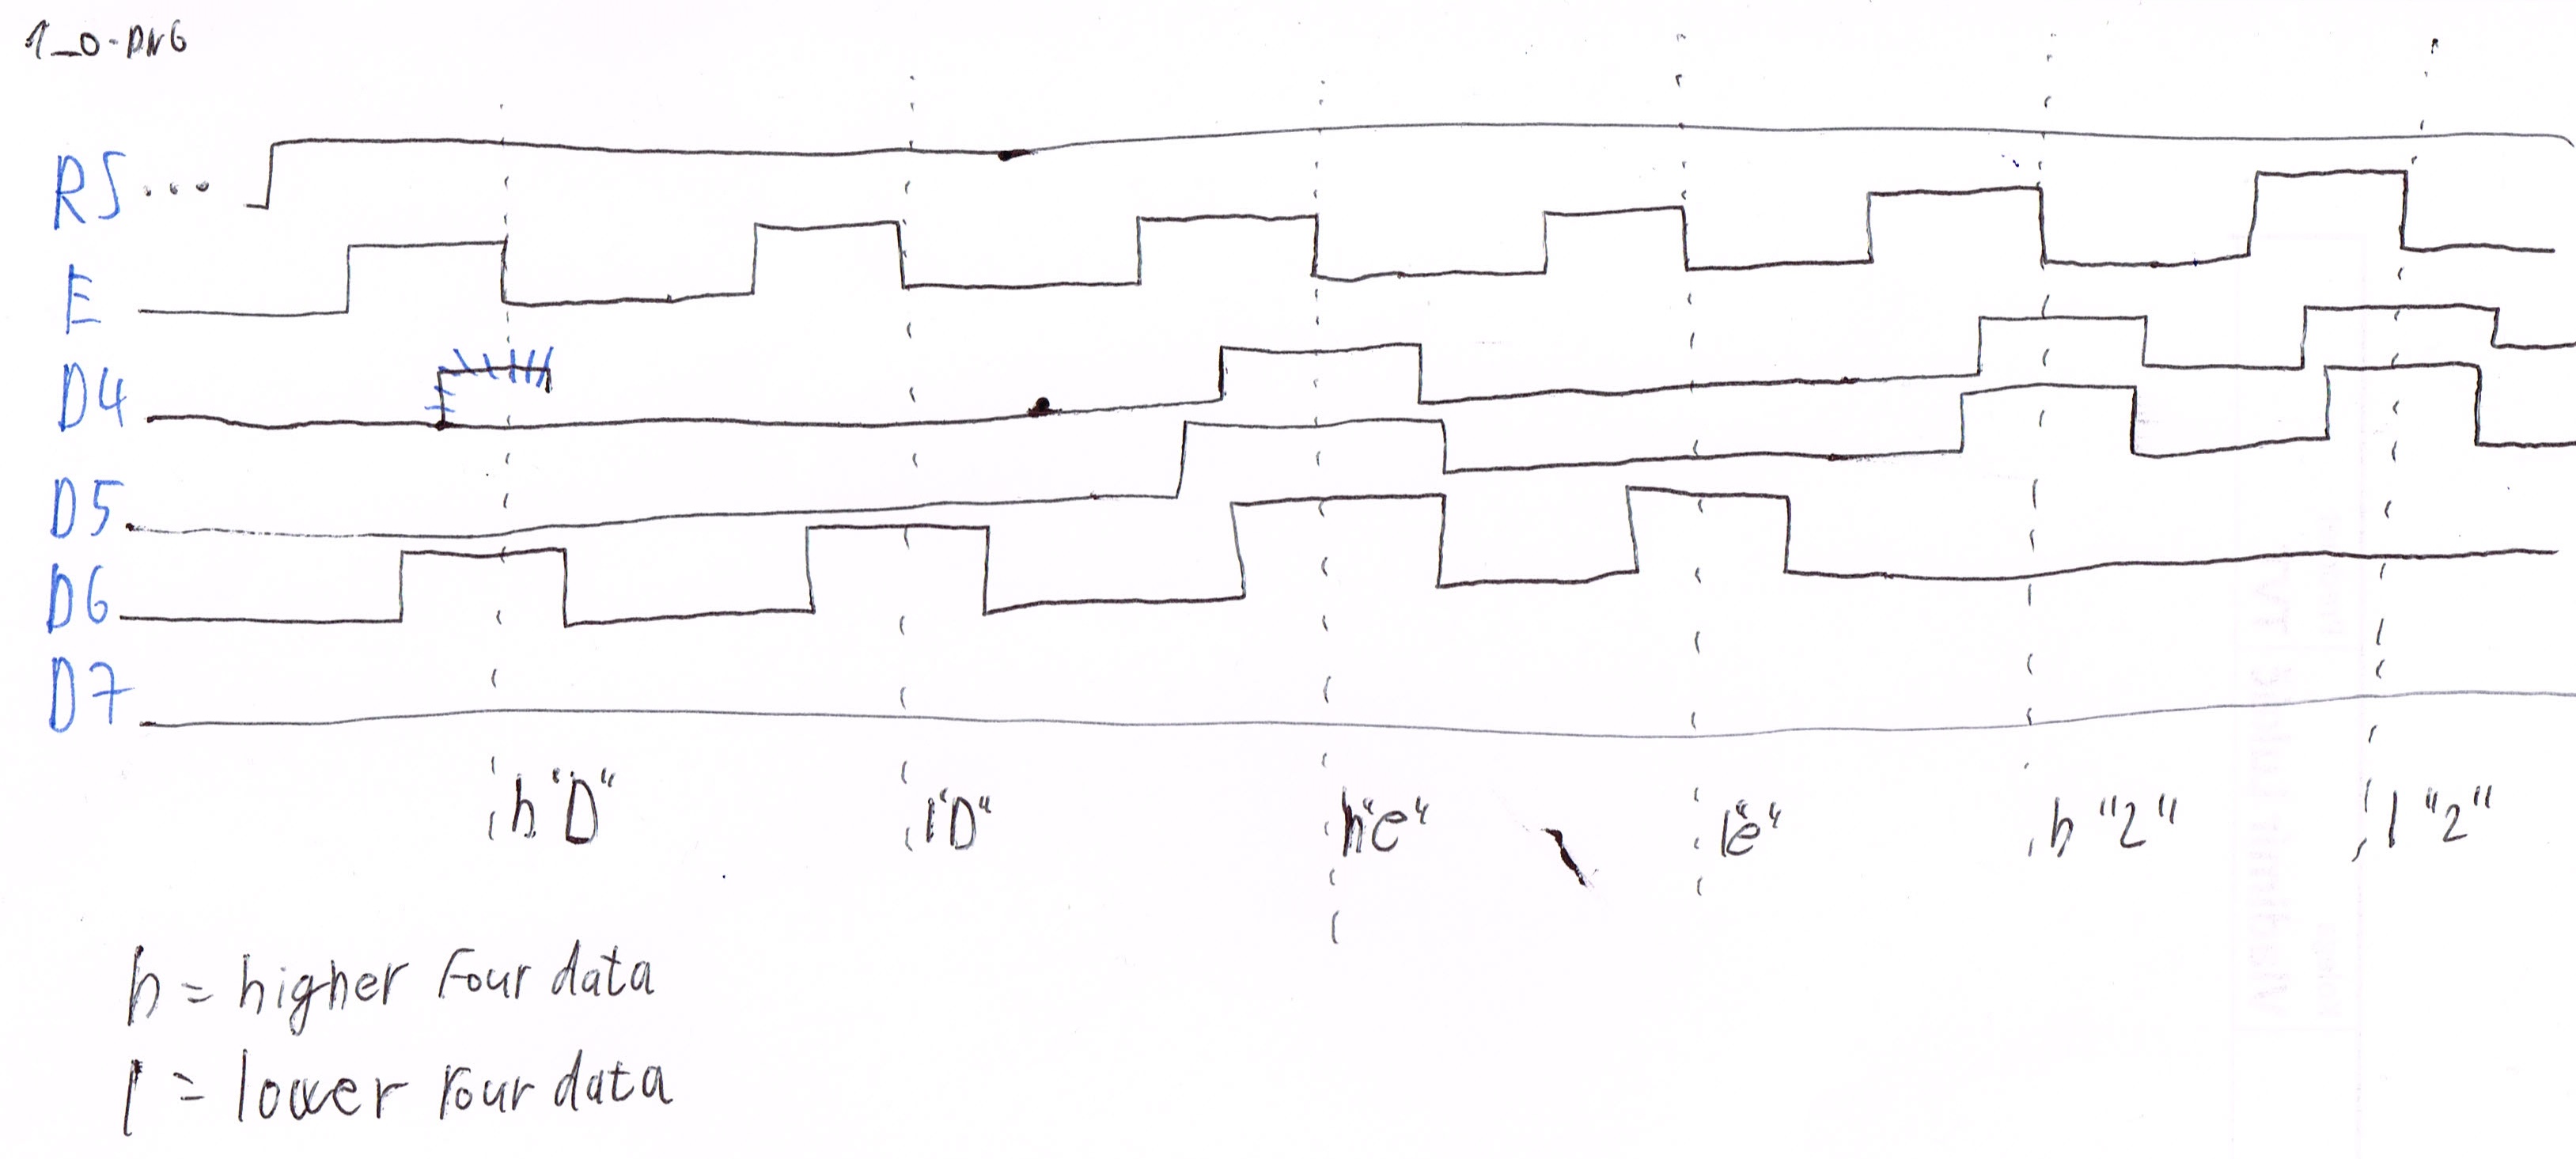 1_0-DNG
RS...
E
D4
D5
D6
D7
h "D" l "D" h "e" l "e" h "2" l "2"
h = higher four data
l = lower four data